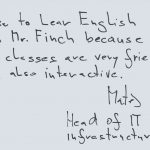 to Lear English
Mr. Finch because
classes are very frie
also interactive.
Head of IT
infrastructure